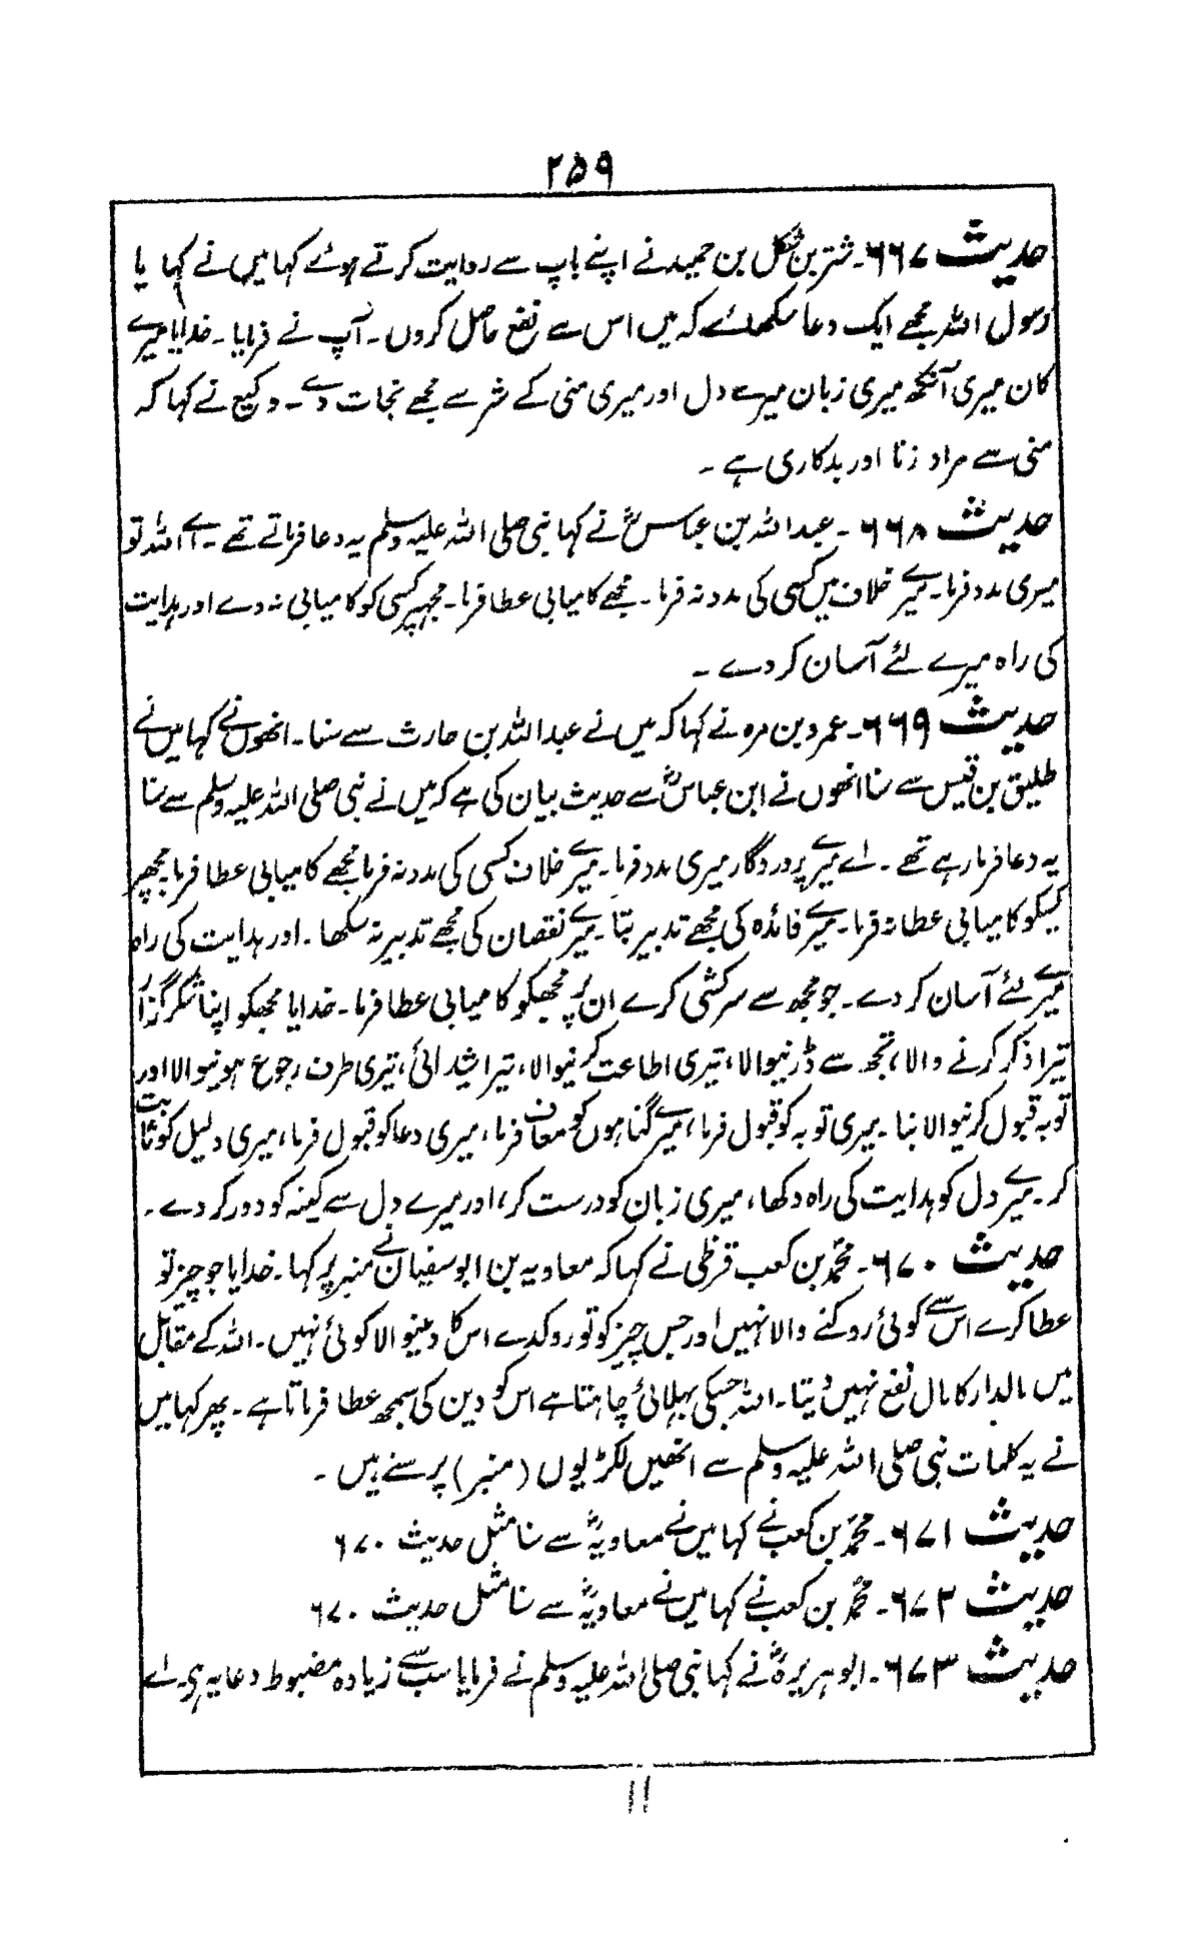 ۲۵۹
حدیث ۶۶۷۔ شتر بن شکل بن حمید نے اپنے باپ سے روایت کرتے ہوئے کہا میں نے کہا یا
رسول اللہ مجھے ایک دعا سکھلائے کہ میں اس سے نفع حاصل کروں۔ آپ نے فرمایا۔ خدایا میرے
کان میری آنکھ میری زبان میرے دل اور میری منی کے شر سے مجھے نجات دے۔ وکیع نے کہا کہ
منی سے مراد زنا اور بدکاری ہے ۔
حدیث ۶۶۸ ۔ عبداللہ بن عباسؓ نے کہا نبی صلی اللہ علیہ وسلم یہ دعا فرماتے تھے ۔ اے اللہ تو
میری مدد فرما۔ میرے خلاف میں کسی کی مدد نہ فرما۔ مجھے کامیابی عطا فرما۔ مجھپر کسی کو کامیابی نہ دے اور ہدایت
کی راہ میرے لئے آسان کر دے ۔
حدیث ۶۶۹ ۔ عمرو بن مرہ نے کہا کہ میں نے عبداللہ بن حارث سے سنا۔ انھوں نے کہا میں نے
طلیق بن قیس سے سنا انھوں نے ابن عباسؓ سے حدیث بیان کی ہے کہ میں نے نبی صلی اللہ علیہ وسلم سے سنا
یہ دعا فرما رہے تھے ۔ اے میرے پروردگار میری مدد فرما۔ میرے خلاف کسی کی مدد نہ فرما مجھے کامیابی عطا فرما مجھپر
کسیکو کامیابی عطا نہ فرما۔ میرے فائدہ کی مجھے تدبیر بتا۔ میرے نقصان کی مجھے تدبیر نہ سکھا۔ اور ہدایت کی راہ
میرے لئے آسان کر دے ۔ جو مجھ سے سرکشی کرے ان پر مجھکو کامیابی عطا فرما۔ خدایا مجھکو اپنا شکر گزار
تیرا ذکر کرنے والا، تجھ سے ڈرنیوالا، تیری اطاعت کرنیوالا، تیرا شیدائی، تیری طرف رجوع ہونیوالا اور
توبہ قبول کرنیوالا بنا۔ میری توبہ کو قبول فرما، میرے گناہوں کو معاف فرما، میری دعا کو قبول فرما، میری دلیل کو ثابت
کر۔ میرے دل کو ہدایت کی راہ دکھا، میری زبان کو درست کر، اور میرے دل سے کینہ کو دور کر دے ۔
حدیث ۶۷۰ ۔ محمدؒ بن کعب قرظی نے کہا کہ معاویہ بن ابو سفیان نے منبر پر کہا۔ خدایا جو چیز تو
عطا کرے اس سے کوئی روکنے والا نہیں اور جس چیز کو تو روکدے اس کا دینیوالا کوئی نہیں۔ اللہ کے مقابل
میں مالدار کا مال نفع نہیں دیتا۔ اللہ جسکی بھلائی چاہتا ہے اس کو دین کی سمجھ عطا فرماتا ہے ۔ پھر کہا میں
نے یہ کلمات نبی صلی اللہ علیہ وسلم سے انھیں لکڑیوں (منبر) پر سنے ہیں ۔
حدیث ۶۷۱ ۔ محمدؒ بن کعب نے کہا میں نے معاویہؓ سے سنا مثل حدیث ۶۷۰
حدیث ۶۷۲ ۔ محمدؒ بن کعب نے کہا میں نے معاویہؓ سے سنا مثل حدیث ۶۷۰
حدیث ۶۷۳ ۔ ابو ہریرہؓ نے کہا نبی صلی اللہ علیہ وسلم نے فرمایا سب سے زیادہ مضبوط دعا یہ ہی۔ اے
۱۱